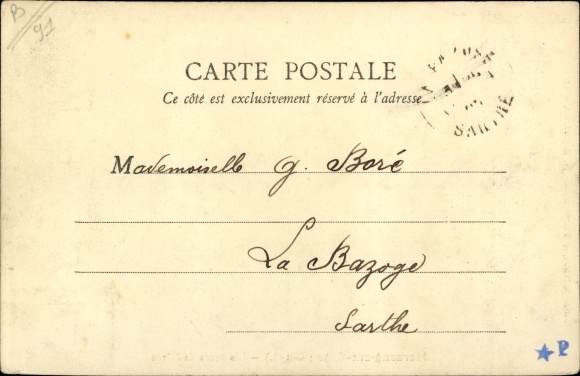 B
91
CARTE POSTALE
Ce côté est exclusivement réservé à l'adresse
SARTHE
Mademoiselle G. Boré
La Bazoge
Sarthe
P